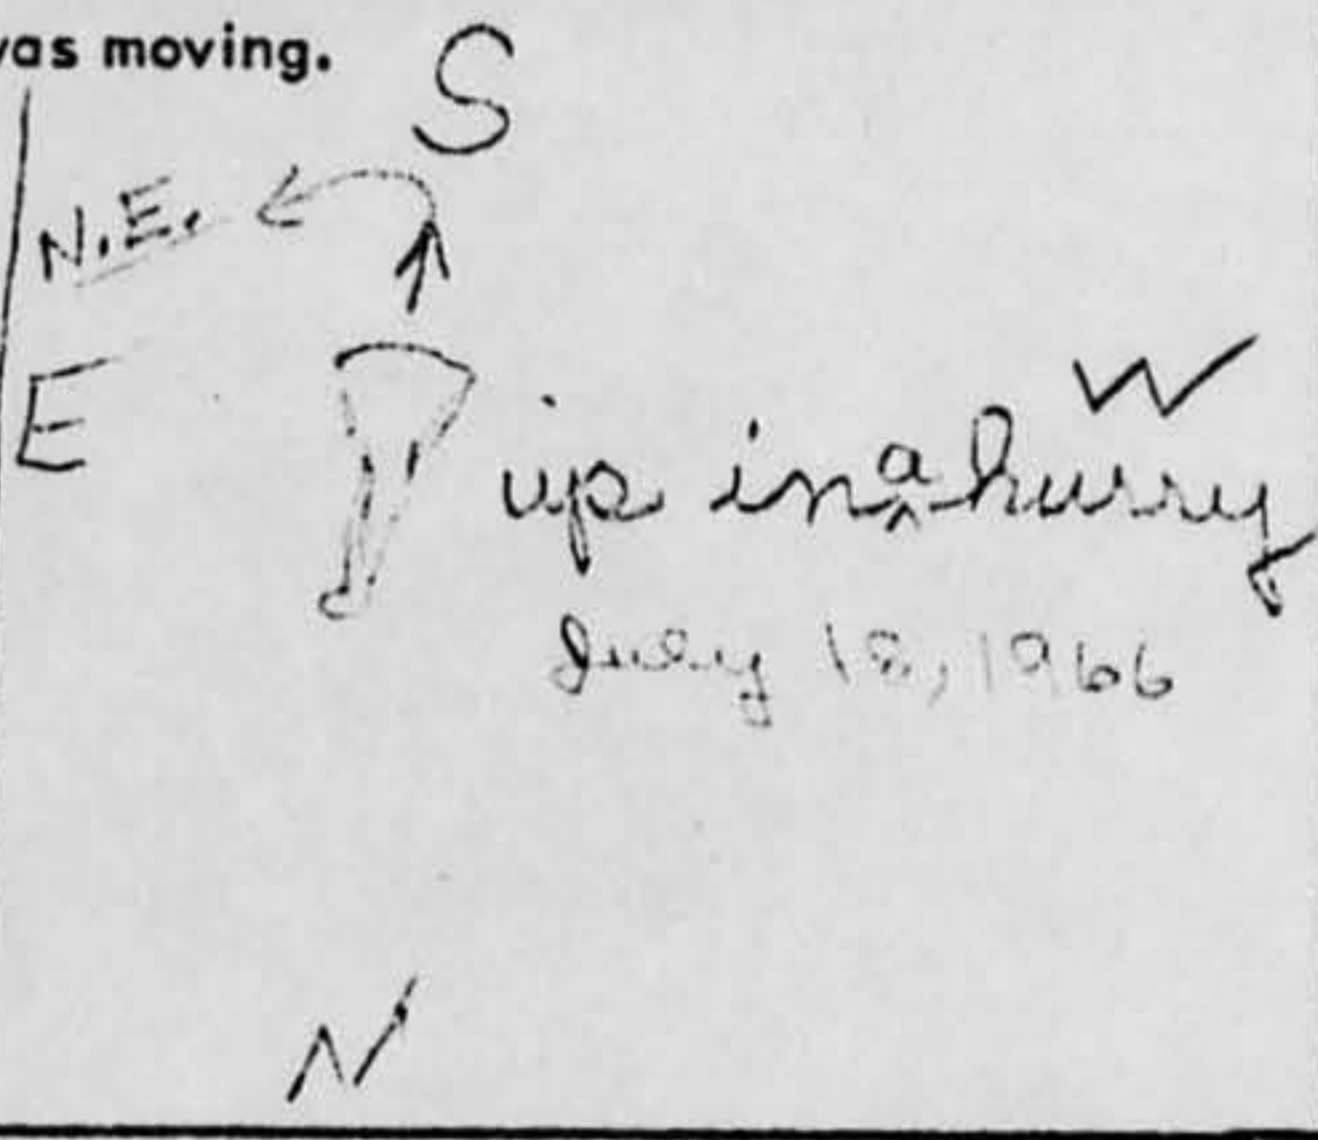 was moving.
S
N.E.
E
W
up in a hurry
July 18, 1966
N